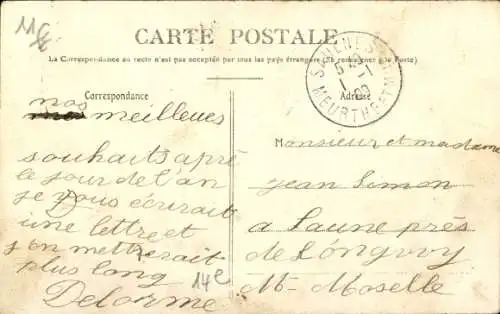 11€
CARTE POSTALE
La Correspondance au recto n'est pas acceptée par tous les pays étrangers (Se renseigner à la Poste)
Correspondance
Adresse
MEURTHE ET M
nos meilleues
souhaits apré
le jour de l'an
je vous écrirait
une lettre et
j'en metterait
plus long
Delorme
14€
Monsieur et madame
jean Simon
a Saune près
de Longwy
Mt- Moselle